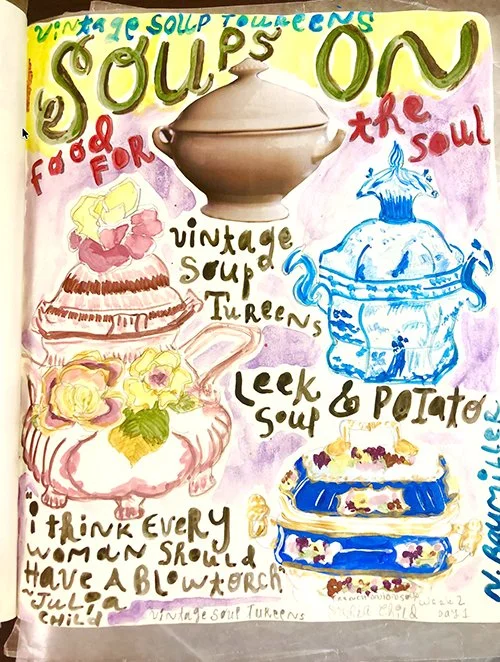 vintage SOUP TOUREENS
SOUPS ON
food FOR
the SOUL
vintage
SOUP
TUREENS
LEEK & POTATO
SOUP
"i THINK EVERY
WOMAN SHOULD
HAVE A BLOWTORCH"
~JULIA
CHILD
VINTAGE SOUP TUREENS
WEEK 2
DAY 1